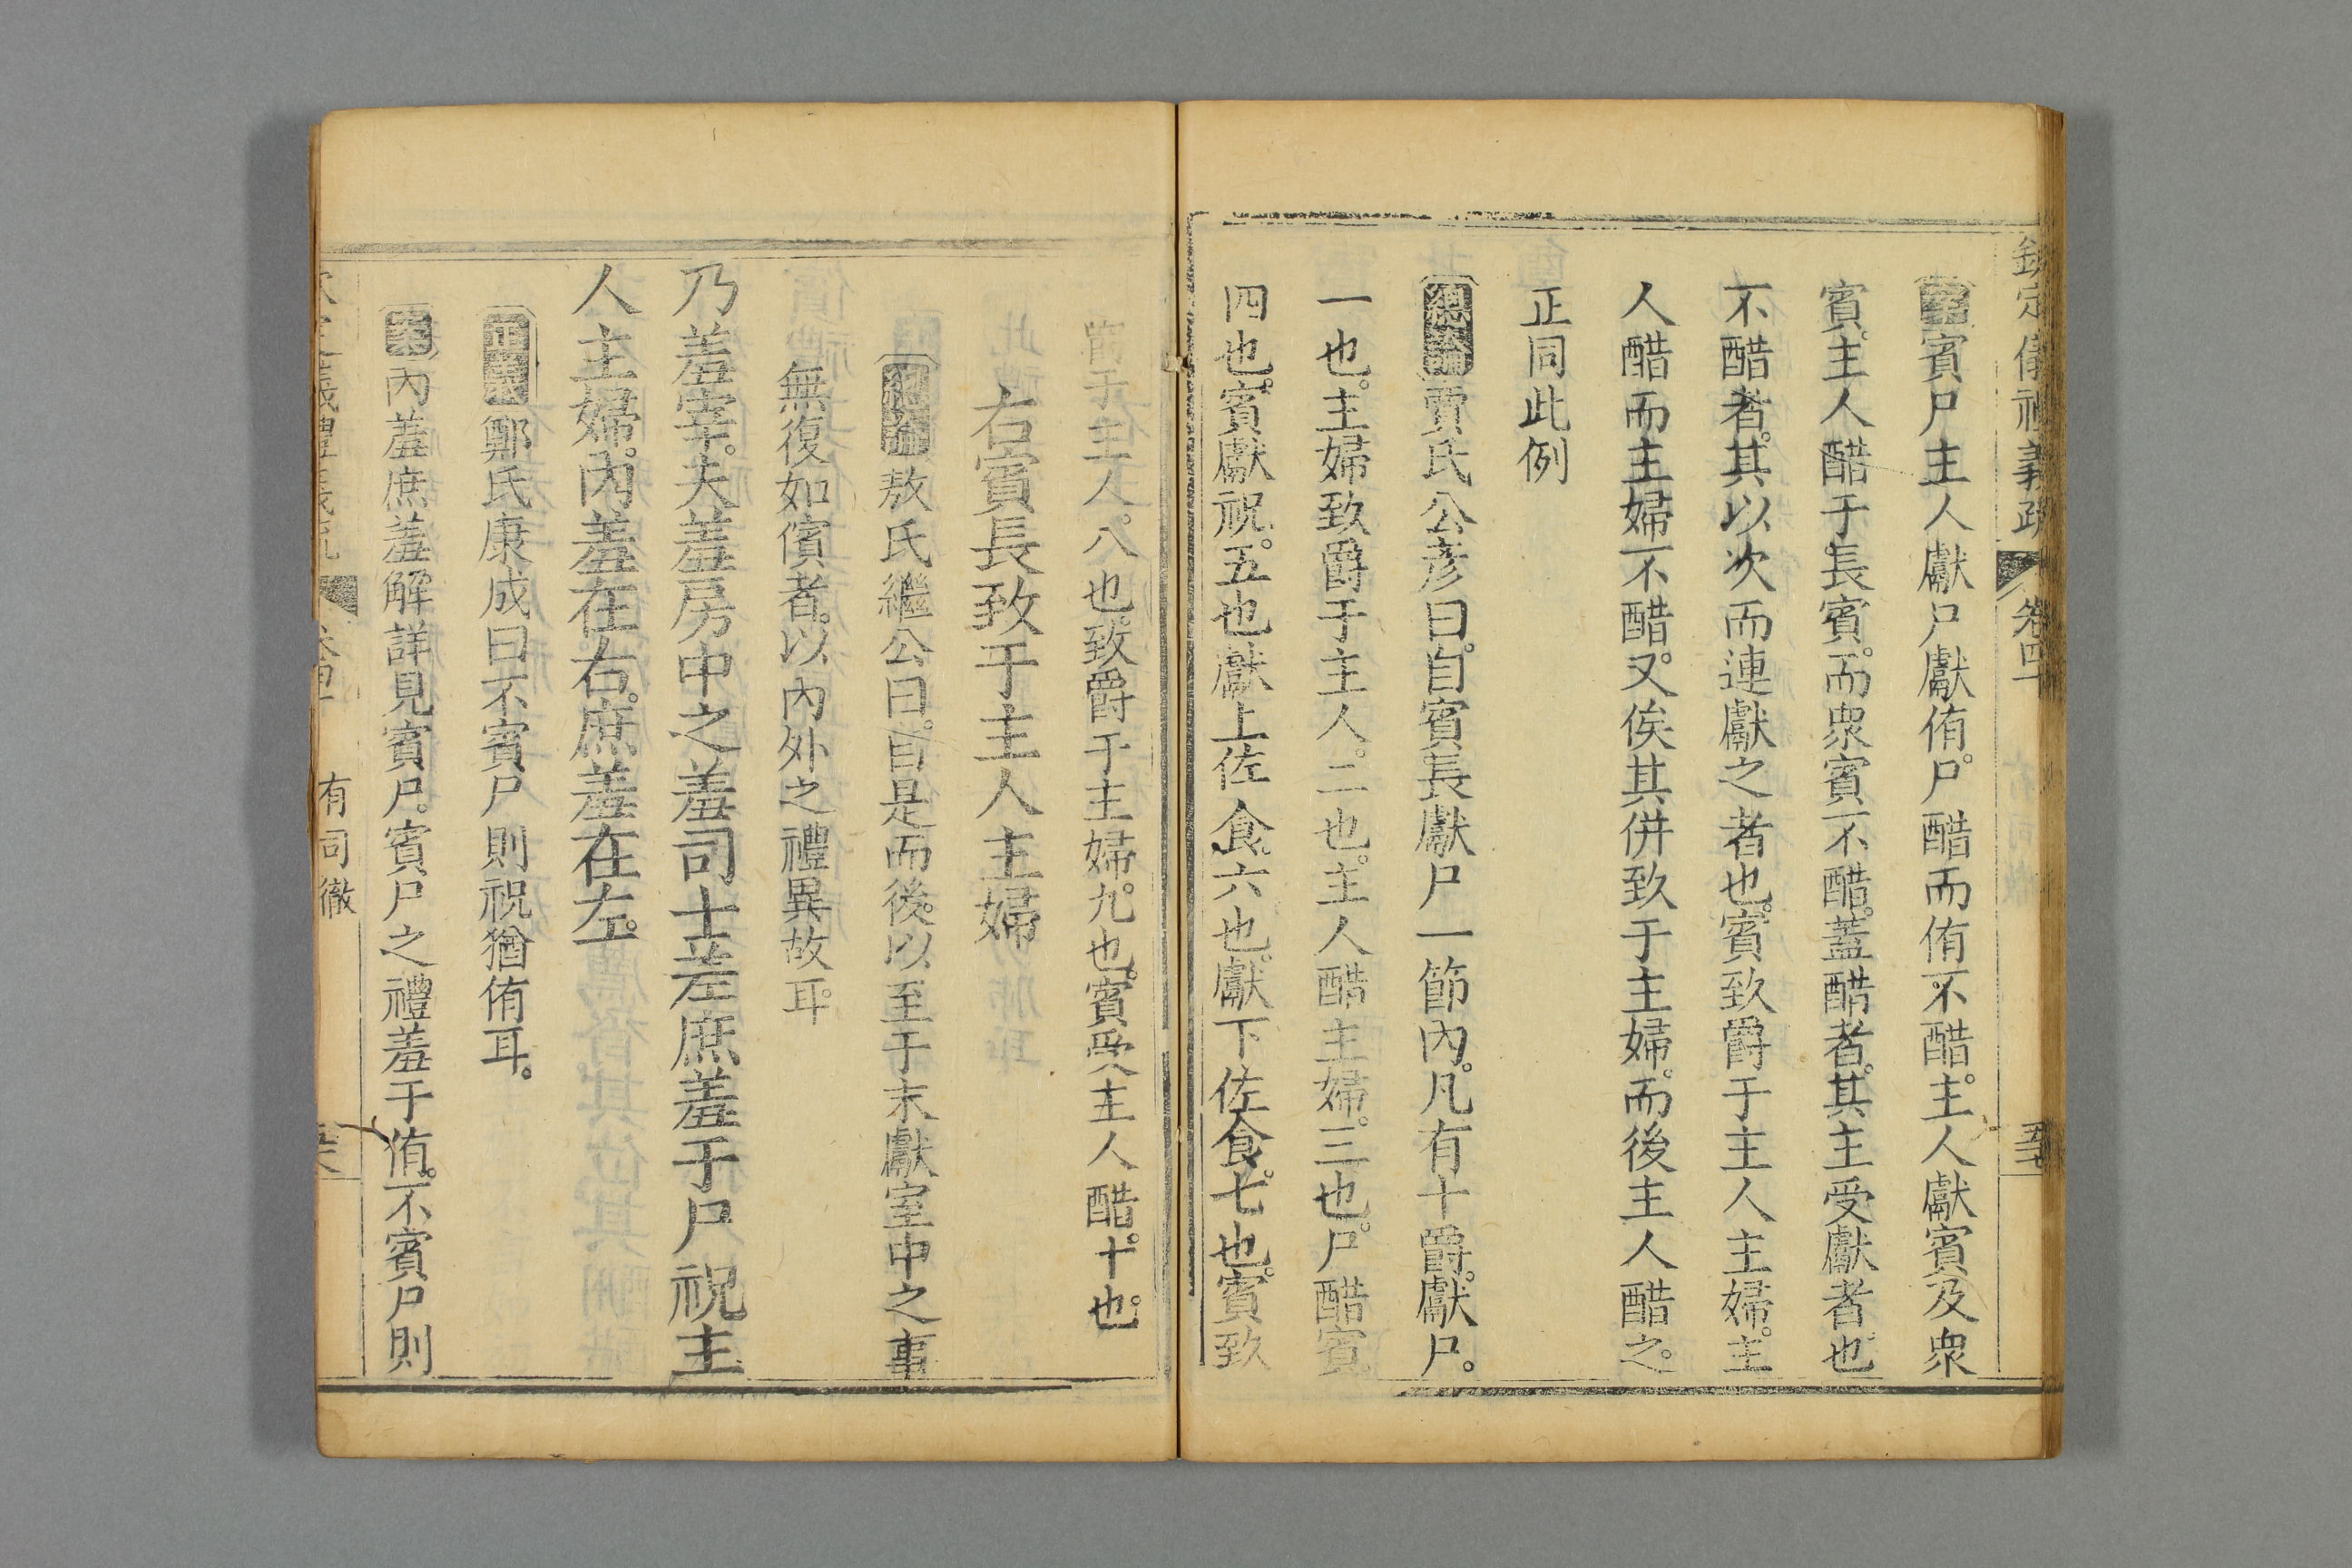 欽定儀禮義疏 卷四十
案賓尸主人獻尸獻侑。尸酢而侑不酢。主人獻賓及衆
賓。主人醋于長賓。而衆賓不醋。蓋醋者。其主受獻者也
不醋者。其以次而連獻之者也。賓致爵于主人主婦。主
人醋而主婦不醋。又俟其併致于主婦。而後主人醋之。
正同此例
總論賈氏公彥曰。自賓長獻尸一節內。凡有十爵。獻尸。
一也。主婦致爵于主人。二也。主人醋主婦。三也。尸醋賓
四也。賓獻祝。五也獻上佐食。六也。獻下佐食。七也。賓致
爵于主人。八也。致爵于主婦。九也。賓受主人醋。十也。
右賓長致于主人主婦
總論敖氏繼公曰。自是而後。以至于末獻室中之事
無復如儐者。以內外之禮異故耳。
乃羞宰。夫羞房中之羞司士羞庶羞于尸祝主
人主婦。內羞在右。庶羞在左。
正義鄭氏康成曰不賓尸則祝猶侑耳。
案內羞庶羞解詳見賓尸。賓尸之禮羞于侑。不賓尸則
有司徹